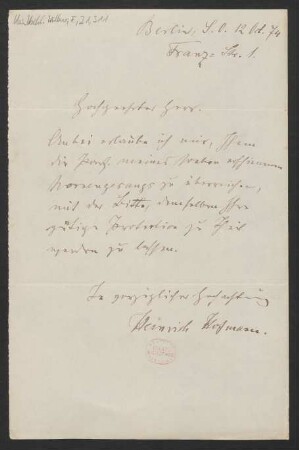 Berlin, S. O. 12 Oct. 74
Franz-Str. 1.
Hochgeehrter Herr.
Anbei erlaube ich mir, Ihnen
die Part. meines soeben erschienenen
Nornengesangs zu überreichen,
mit der Bitte, demselben Ihre
gütige Protection zu Theil
werden zu lassen.
In vorzüglicher Hochachtung
Heinrich Hofmann.